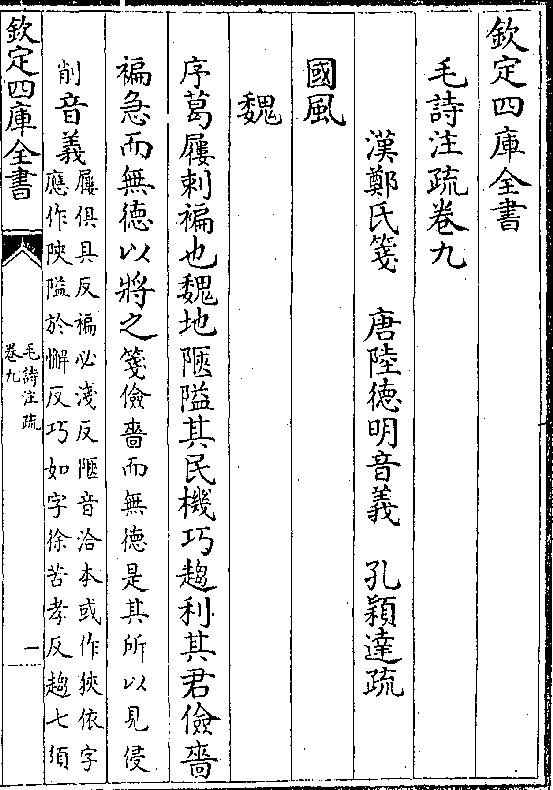 欽定四庫全書
毛詩注疏卷九
漢鄭氏箋　唐陸德明音義　孔穎達疏
國風
魏
序葛屨刺褊也魏地陿隘其民機巧趨利其君儉嗇
褊急而無德以將之箋儉嗇而無德是其所以見侵
削音義屨俱具反褊必淺反陿音洽本或作狹依字
應作陜隘於懈反巧如字徐苦孝反趨七須
欽定四庫全書
毛詩注疏
卷九
一